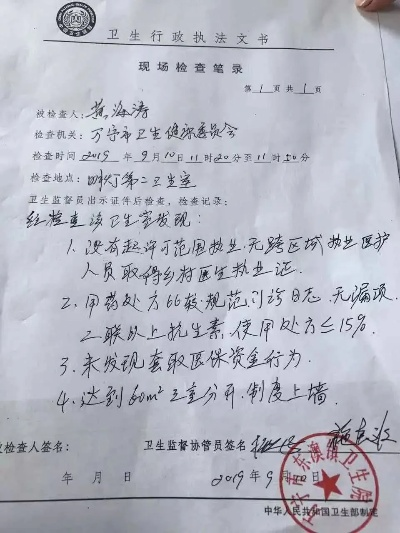 卫生行政执法文书
现场检查笔录
第1页共1页
被检查人:黄海涛
检查机关:万宁市卫生健康委员会
检查时间2019年9月10日11时20分至11时50分
检查地点:第二卫生室
卫生监督员出示证件后检查,检查记录:
经检查该卫生室发现:
1.没有超许可范围执业,无跨区域执业医护
人员取得乡村医生执业证.
2.用药处方比较规范,门诊日志,无漏项.
二联以上抗生素,使用处方≤15%.
3.未发现套取医保资金行为.
4.达到60m²三室分开.制度上墙.
被检查人签名:
卫生监督协管员签名
年 月 日
2019年9月10日
中华人民共和国卫生部制定